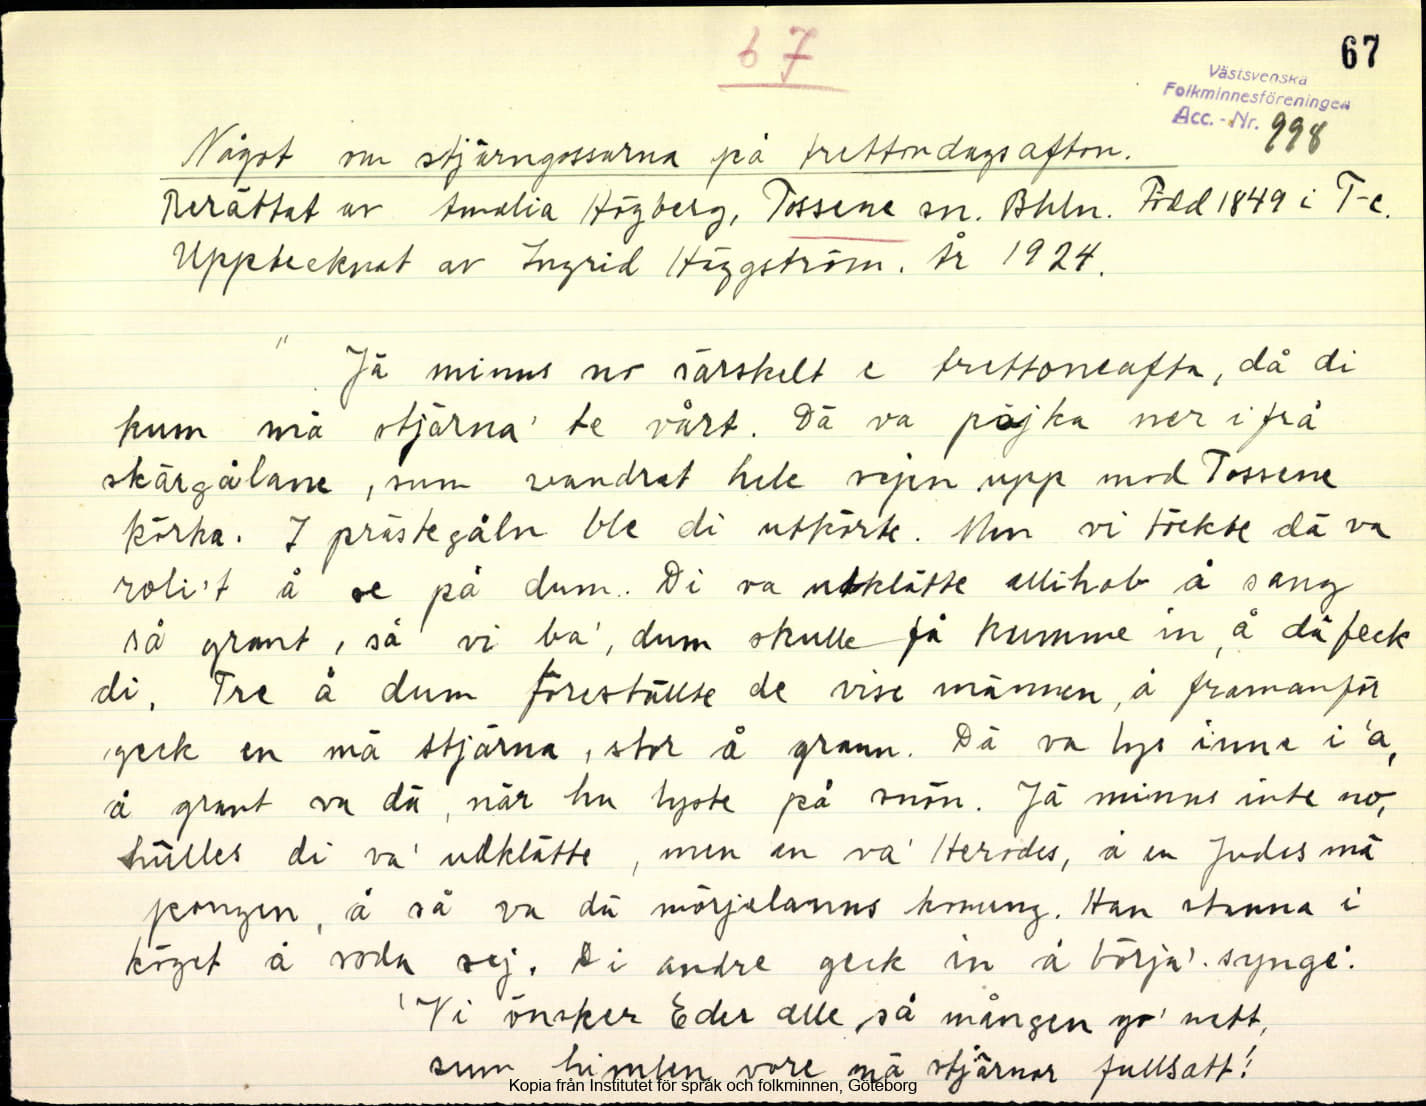 67
67
Västsvenska
Folkminnesföreningen
Acc. - Nr. 998
Något om stjärngossarna på trettondagsafton.
Berättat av Amalia Högberg, Tossene sn. Bhln. Född 1849 i T-e.
Upptecknat av Ingrid Häggström. År 1924.
" Jä minns no särskelt e trettoneafta, då di
kum mä stjärna' te vårt. Dä va påjka ner ifrå
skärgålane, sum vandrat hele vejen upp mod Tossene
körka. I prästegåln ble di utkörte. Men vi töckte dä va
roli't å se på dum. Di va utklätte allihob å sang
så grant, så vi ba', dum skulle få kumme in, å dä feck
di. Tre å dum föreställte de vise männen, å framanför
geck en mä stjärna, stor å grann. Dä va lys inne i 'a,
å grant va dä, när hu lyste på snön. Jä minns inte no,
hülles di va' udklätte, men en va' Herodes, å en Judas mä
pongen, å så va dä mörjelanns konung. Han stanna i
köget å soda sej. Di andre geck in å börja' synge:
'Vi önsker Eder alle så mången go' natt,
sum himlen vore mä stjärnor fullsatt!'
Kopia från Institutet för språk och folkminnen, Göteborg